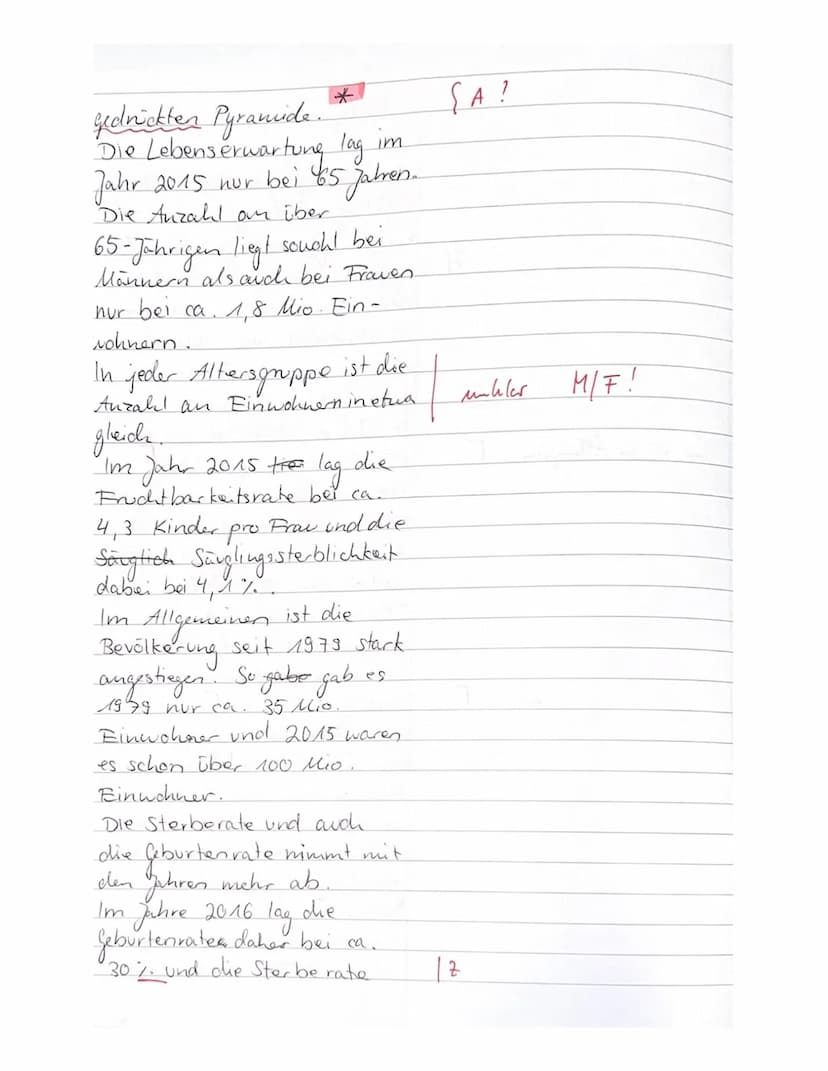 * { A ?
gedrückten Pyramide.
Die Lebenserwartung lag im
Jahr 2015 nur bei 65 Jahren.
Die Anzahl an über
65-Jährigen liegt sowohl bei
Männern als auch bei Frauen
nur bei ca. 1,8 Mio. Ein-
wohnern.
In jeder Altersgruppe ist die
Anzahl an Einwohnern in etwa M/F!
gleich.
Im Jahr 2015 lag die
Fruchtbarkeitsrate bei ca.
4,3 Kinder pro Frau und die
Säuglich Säuglingssterblichkeit
dabei bei 4,1 %.
Im Allgemeinen ist die
Bevölkerung seit 1979 stark
angestiegen. So gabe gab es
1979 nur ca. 35 Mio.
Einwohner und 2015 waren
es schon über 100 Mio.
Einwohner.
Die Sterberate und auch
die Geburtenrate nimmt mit
den Jahren mehr ab.
Im Jahre 2016 lag die
Geburtenrate daher bei ca.
30 % und die Sterberate | Z